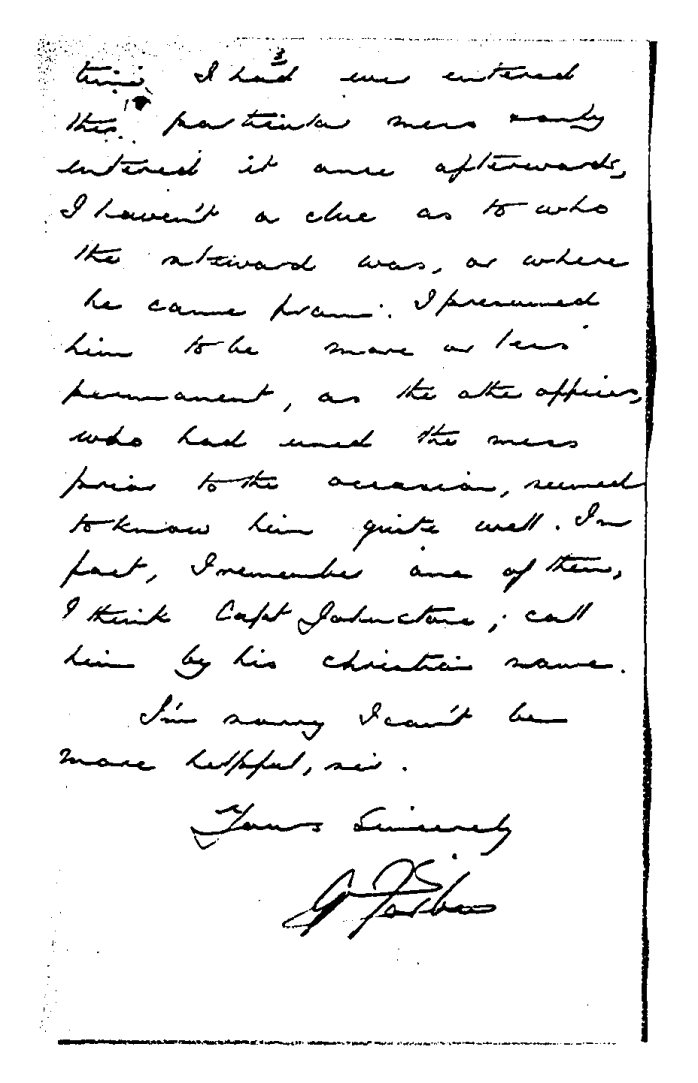 3
time I had ever entered
this particular mess & only
entered it once afterwards,
I haven't a clue as to who
the steward was, or where
he came from. I presumed
him to be more or less
permanent, as the other officers,
who had used the mess
prior to the occasion, seemed
to know him quite well. In
fact, I remember one of them,
I think Capt Johnstone; call
him by his christian name.
I'm sorry I can't be
more helpful, sir.
Yours Sincerely
G Forbes